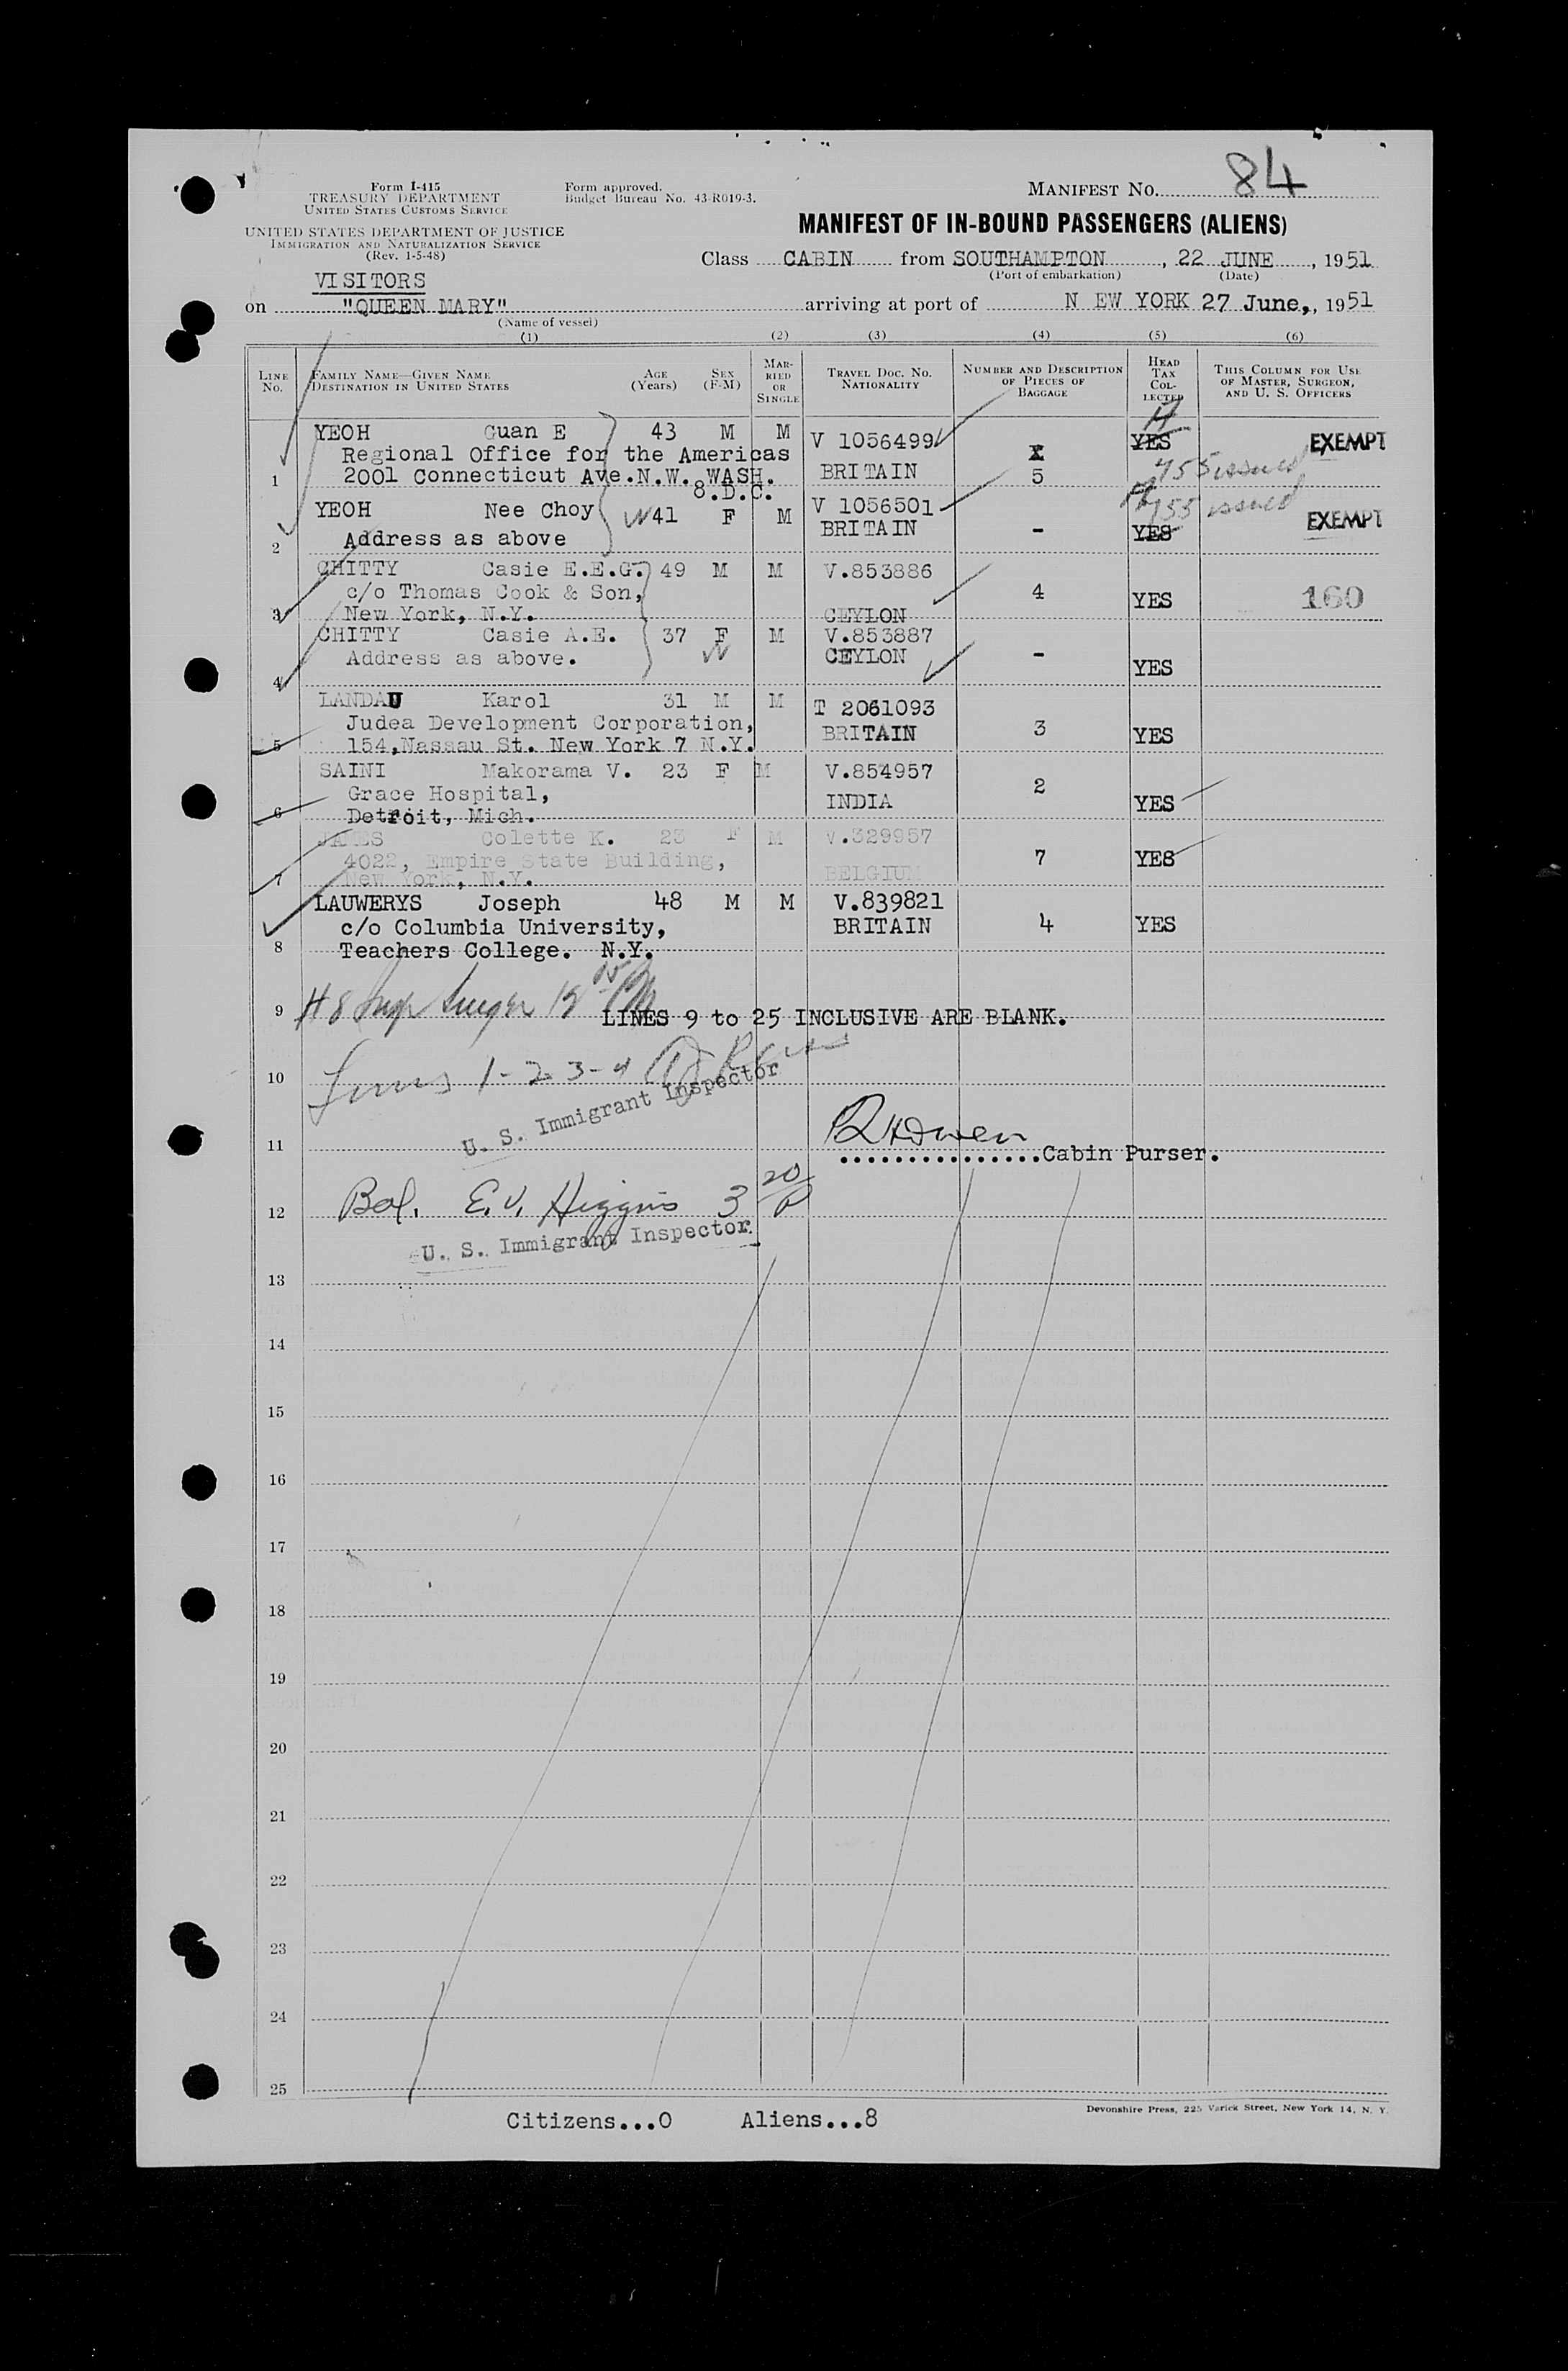 84
Form I-415
TREASURY DEPARTMENT
UNITED STATES CUSTOMS SERVICE
Form approved.
Budget Bureau No. 43-R019-3.
MANIFEST NO.
UNITED STATES DEPARTMENT OF JUSTICE
IMMIGRATION AND NATURALIZATION SERVICE
(Rev. 1-5-48)
MANIFEST OF IN-BOUND PASSENGERS (ALIENS)
Class CABIN from SOUTHAMPTON, 22 JUNE, 1951
(Port of embarkation) (Date)
VISITORS
on "QUEEN MARY" arriving at port of N EW YORK 27 June,, 1951
(Name of vessel)
(1) (2) (3) (4) (5) (6)
LINE No. FAMILY NAME—GIVEN NAME DESTINATION IN UNITED STATES AGE (Years) SEX (F-M) MARRIED OR SINGLE TRAVEL DOC. NO. NATIONALITY NUMBER AND DESCRIPTION OF PIECES OF BAGGAGE HEAD TAX COLLECTED THIS COLUMN FOR USE OF MASTER, SURGEON, AND U. S. OFFICERS
YEOH Guan E 43 M M V 1056499 X YES EXEMPT
Regional Office for the Americas
1 2001 Connecticut Ave.N.W. WASH. BRITAIN 5 755 issued
8.D.C.
YEOH Nee Choy 41 F M V 1056501 755 issued
2 Address as above BRITAIN - YES EXEMPT
CHITTY Casie E.E.G. 49 M M V.853886
c/o Thomas Cook & Son, 4 YES 160
3 New York, N.Y. CEYLON
CHITTY Casie A.E. 37 F M V.853887
4 Address as above. CEYLON - YES
LANDAU Karol 31 M M T 2061093
Judea Development Corporation, BRITAIN 3 YES
5 154,Nassau St. New York 7 N.Y.
SAINI Makorama V. 23 F M V.854957
Grace Hospital, INDIA 2 YES
6 Detroit, Mich.
JAMES Colette K. 23 F M V.329957
4022, Empire State Building, 7 YES
7 New York, N.Y. BELGIUM
LAUWERYS Joseph 48 M M V.839821
c/o Columbia University, BRITAIN 4 YES
8 Teachers College. N.Y.
9 LINES 9 to 25 INCLUSIVE ARE BLANK.
10 Lines 1-2 3-4
U. S. Immigrant Inspector
11 Cabin Purser.
12 Bal. E.V. Higgins 3 20/P
U. S. Immigrant Inspector.
13
14
15
16
17
18
19
20
21
22
23
24
25
Citizens...0 Aliens...8
Devonshire Press, 225 Varick Street, New York 14, N. Y.